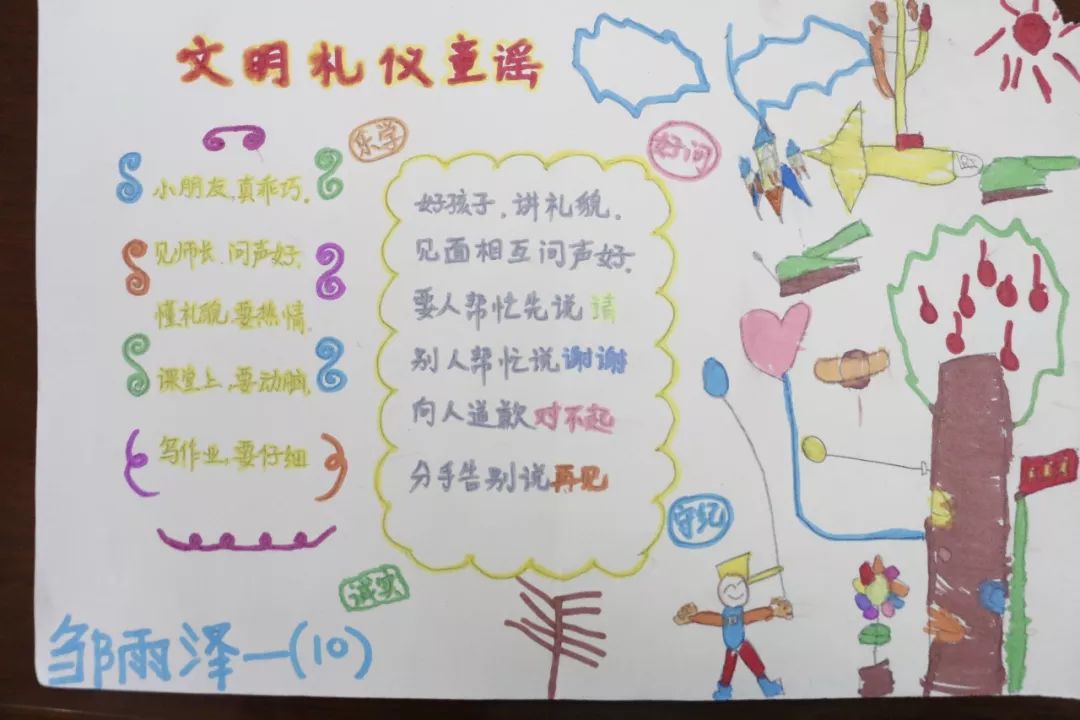 文明礼仪童谣
乐学
好问
小朋友,真乖巧.
见师长.问声好.
懂礼貌.要热情.
课堂上,要动脑.
写作业,要仔细
好孩子.讲礼貌.
见面相互问声好.
要人帮忙先说请
别人帮忙说谢谢
向人道歉对不起
分手告别说再见
守纪
诚实
邹雨泽一(10)